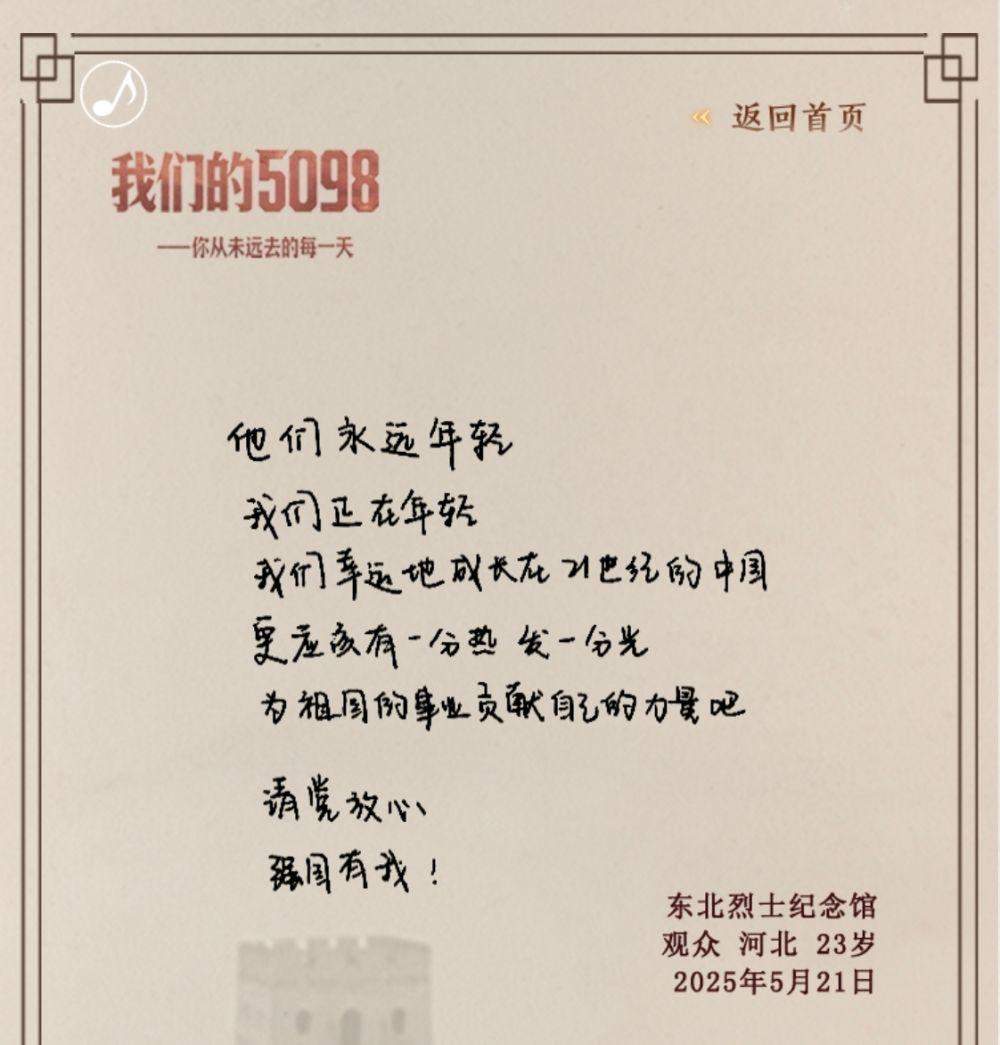 返回首页
我们的5098
——你从未远去的每一天
他们永远年轻
我们正在年轻
我们幸运地成长在21世纪的中国
更应该有一分热 发一分光
为祖国的事业贡献自己的力量吧
请党放心
强国有我！
东北烈士纪念馆
观众 河北 23岁
2025年5月21日